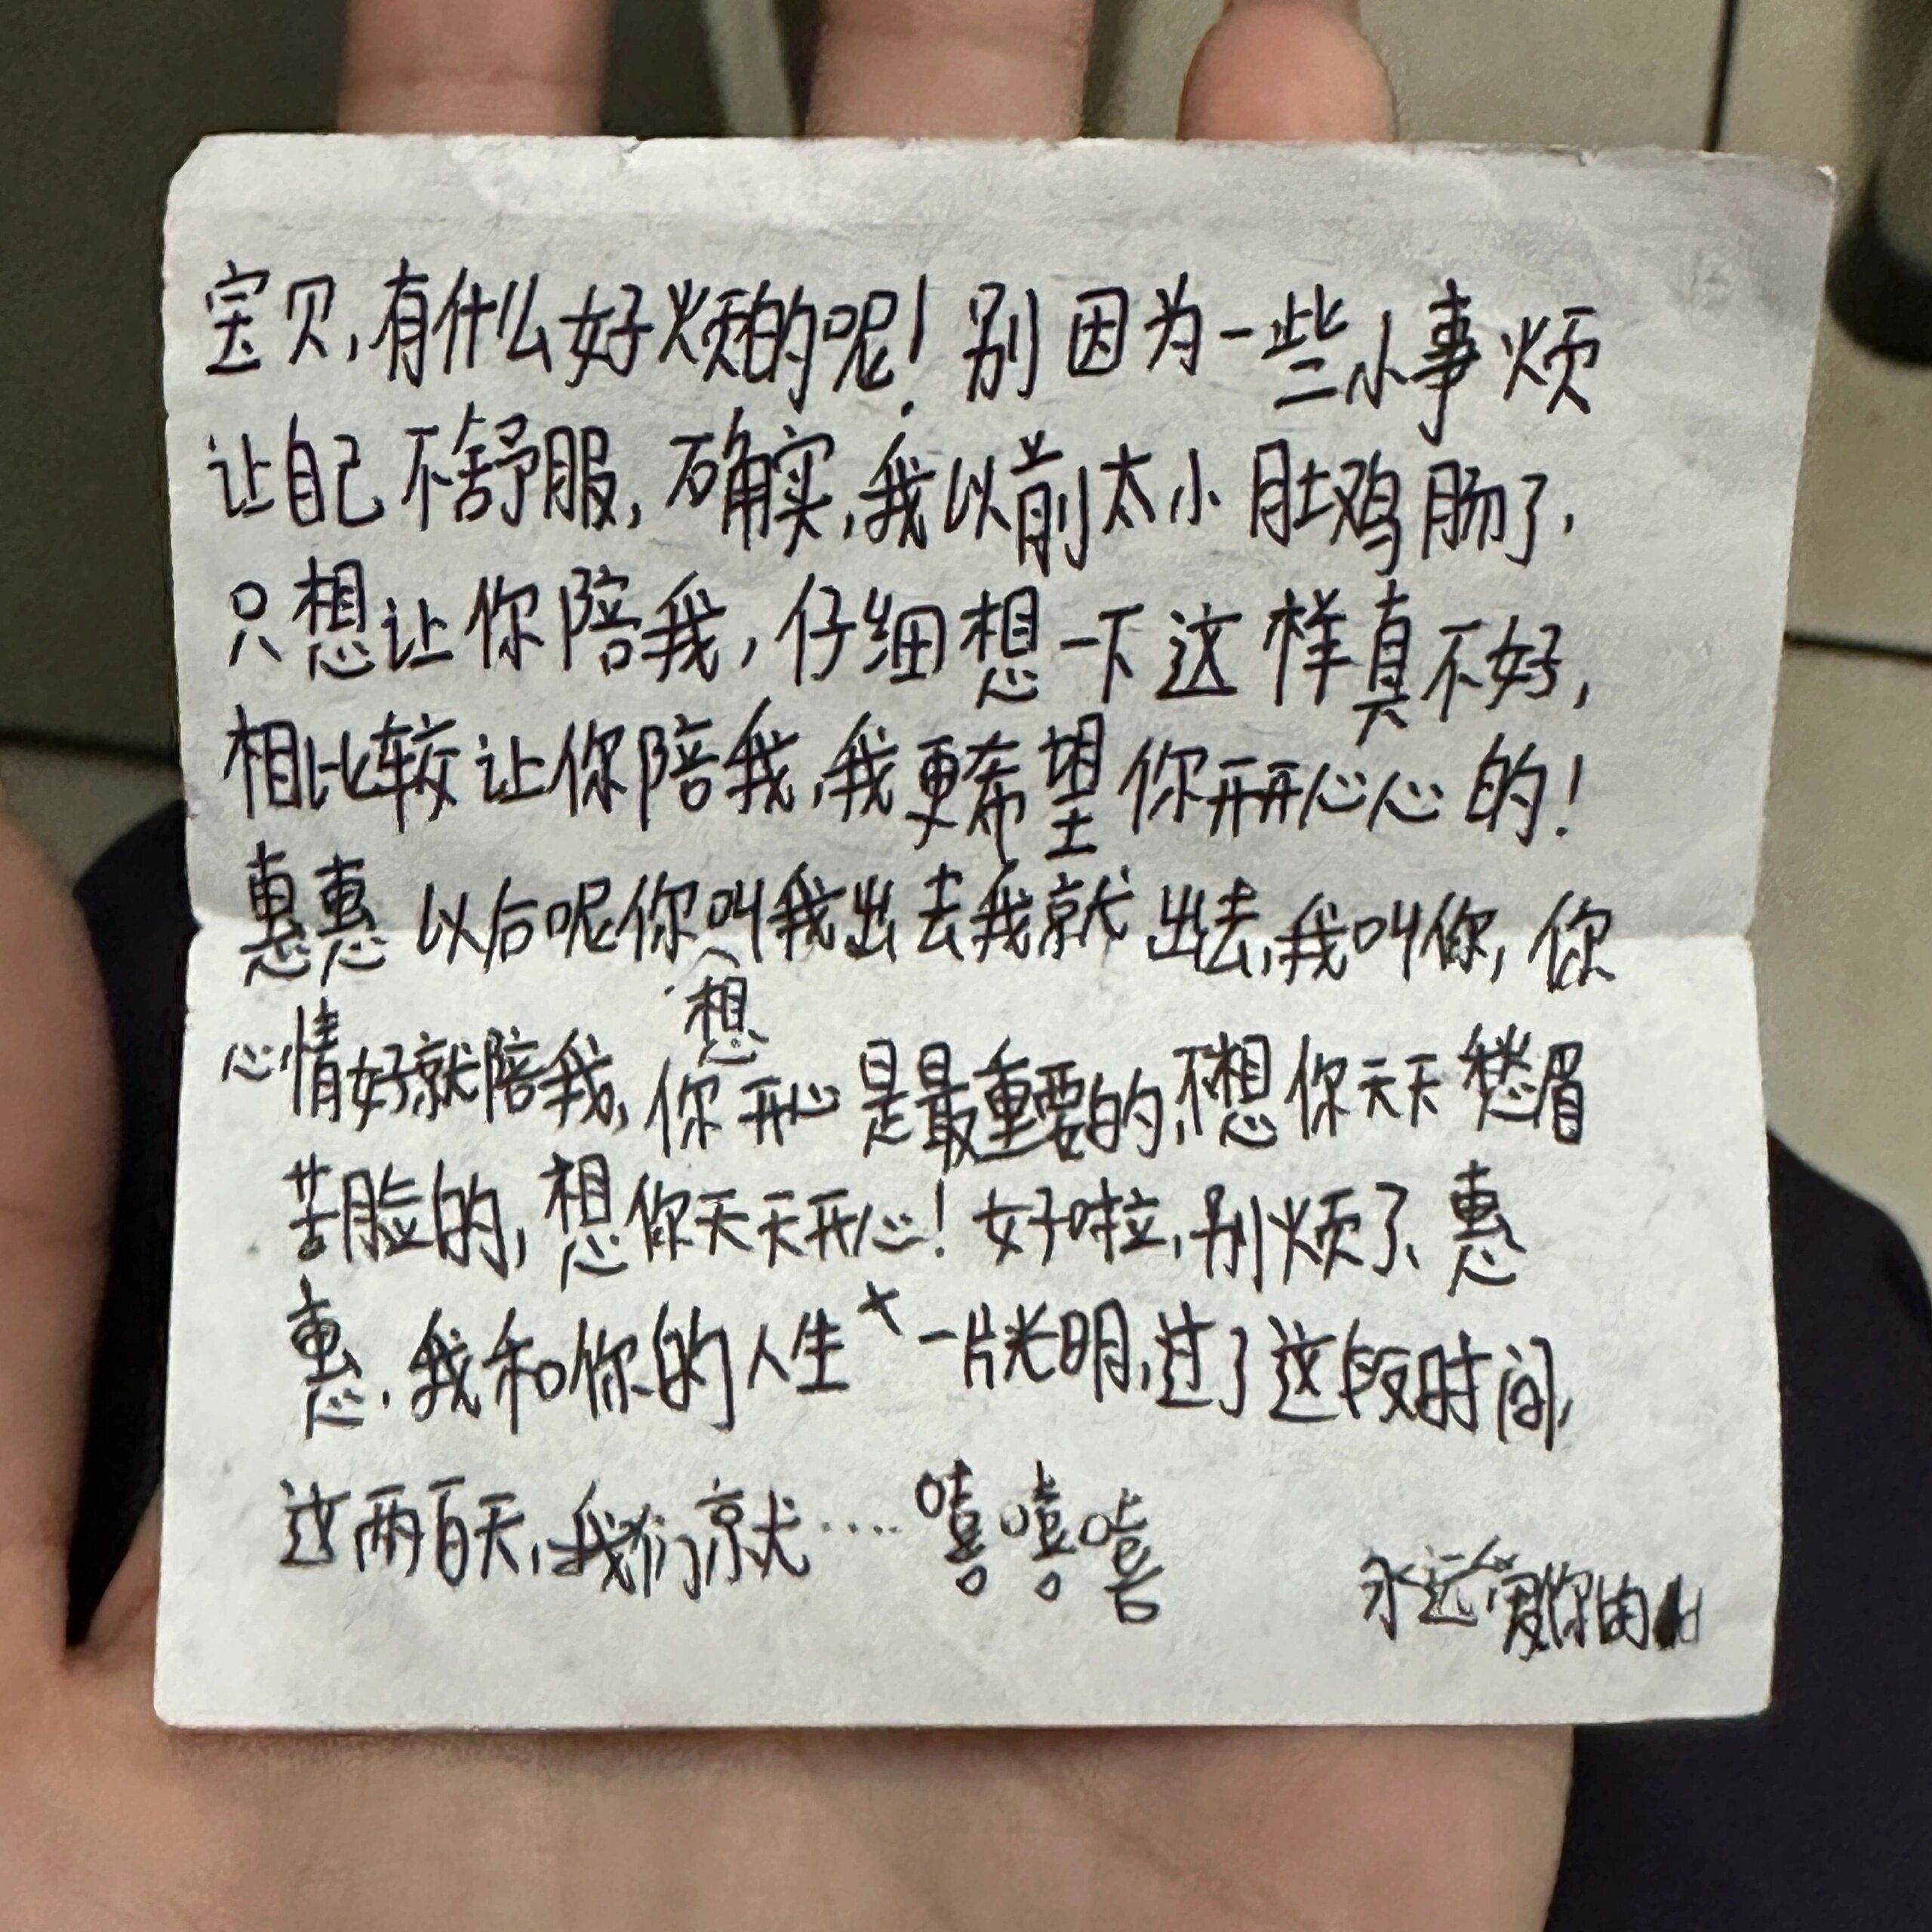 宝贝,有什么好烦的呢!别因为一些小事烦
让自己不舒服,确实,我以前太小肚鸡肠了,
只想让你陪我,仔细想一下这样真不好,
相比较让你陪我,我更希望你开开心心的!
惠惠以后呢你想叫我出去我就出去,我叫你,你
心情好就陪我,你开心是最重要的,不想你天天愁眉
苦脸的,想你天天开心!好啦,别烦了、惠
惠.我和你的人生一片光明,过了这段时间,
这两百天,我们就....嘻嘻嘻
永远爱你的